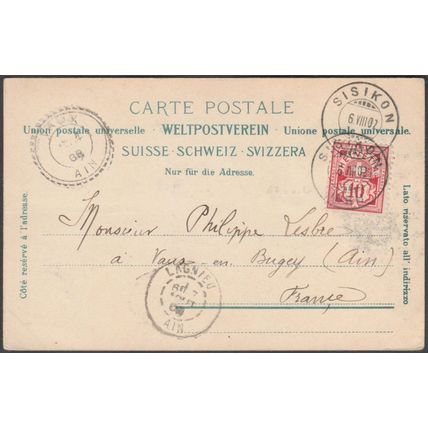 CARTE POSTALE
Union postale universelle - WELTPOSTVEREIN - Unione postale universale.
SUISSE · SCHWEIZ · SVIZZERA
Nur für die Adresse.
SISIKON
6 VIII 02
SISIKON
10
AIN
Côté reservé à l'adresse.
Lato riservato all' indirizzo
Monsieur Philippe Lesbre
à Vaux en Bugey (Ain)
France
LAGNIEU
AIN